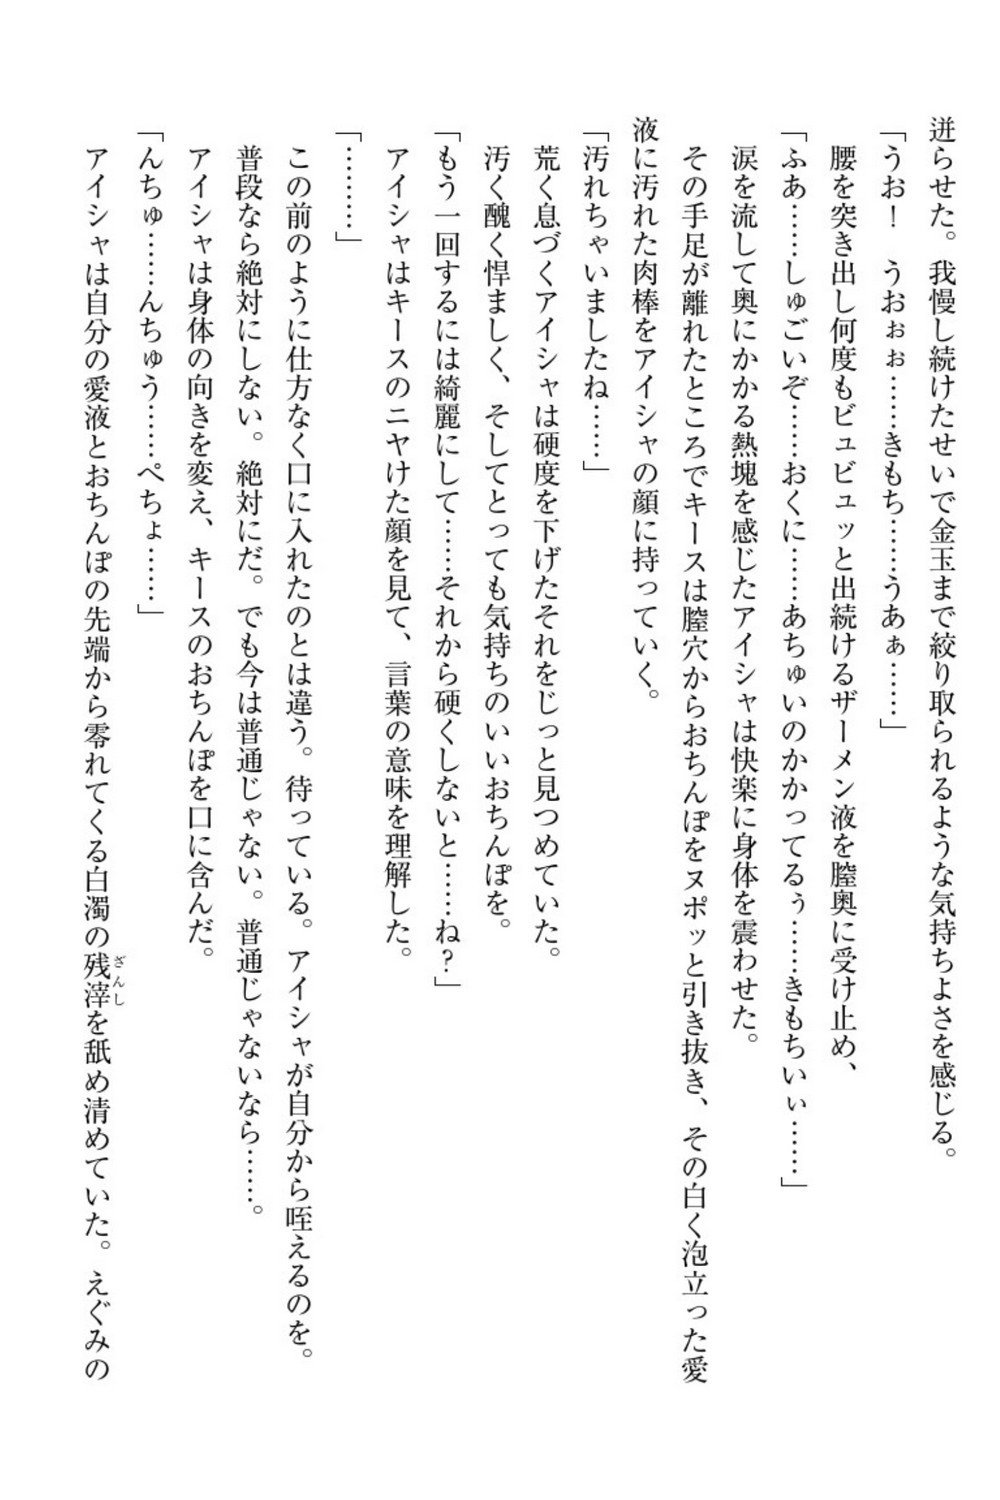 迸らせた。我慢し続けたせいで金玉まで絞り取られるような気持ちよさを感じる。
「うお！　うおぉぉ……きもち……うあぁ……」
腰を突き出し何度もビュビュッと出続けるザーメン液を膣奥に受け止め、
「ふあ……しゅごいぞ……おくに……あちゅいのかかってるぅ……きもちいぃ……」
涙を流して奥にかかる熱塊を感じたアイシャは快楽に身体を震わせた。
その手足が離れたところでキースは膣穴からおちんぽをヌポッと引き抜き、その白く泡立った愛
液に汚れた肉棒をアイシャの顔に持っていく。
「汚れちゃいましたね……」
荒く息づくアイシャは硬度を下げたそれをじっと見つめていた。
汚く醜く悍ましく、そしてとっても気持ちのいいおちんぽを。
「もう一回するには綺麗にして……それから硬くしないと……ね？」
アイシャはキースのニヤけた顔を見て、言葉の意味を理解した。
「………」
この前のように仕方なく口に入れたのとは違う。待っている。アイシャが自分から咥えるのを。
普段なら絶対にしない。絶対にだ。でも今は普通じゃない。普通じゃないなら……。
アイシャは身体の向きを変え、キースのおちんぽを口に含んだ。
「んちゅ……んちゅう……ぺちょ……」
アイシャは自分の愛液とおちんぽの先端から零れてくる白濁の残滓ざんしを舐め清めていた。えぐみの